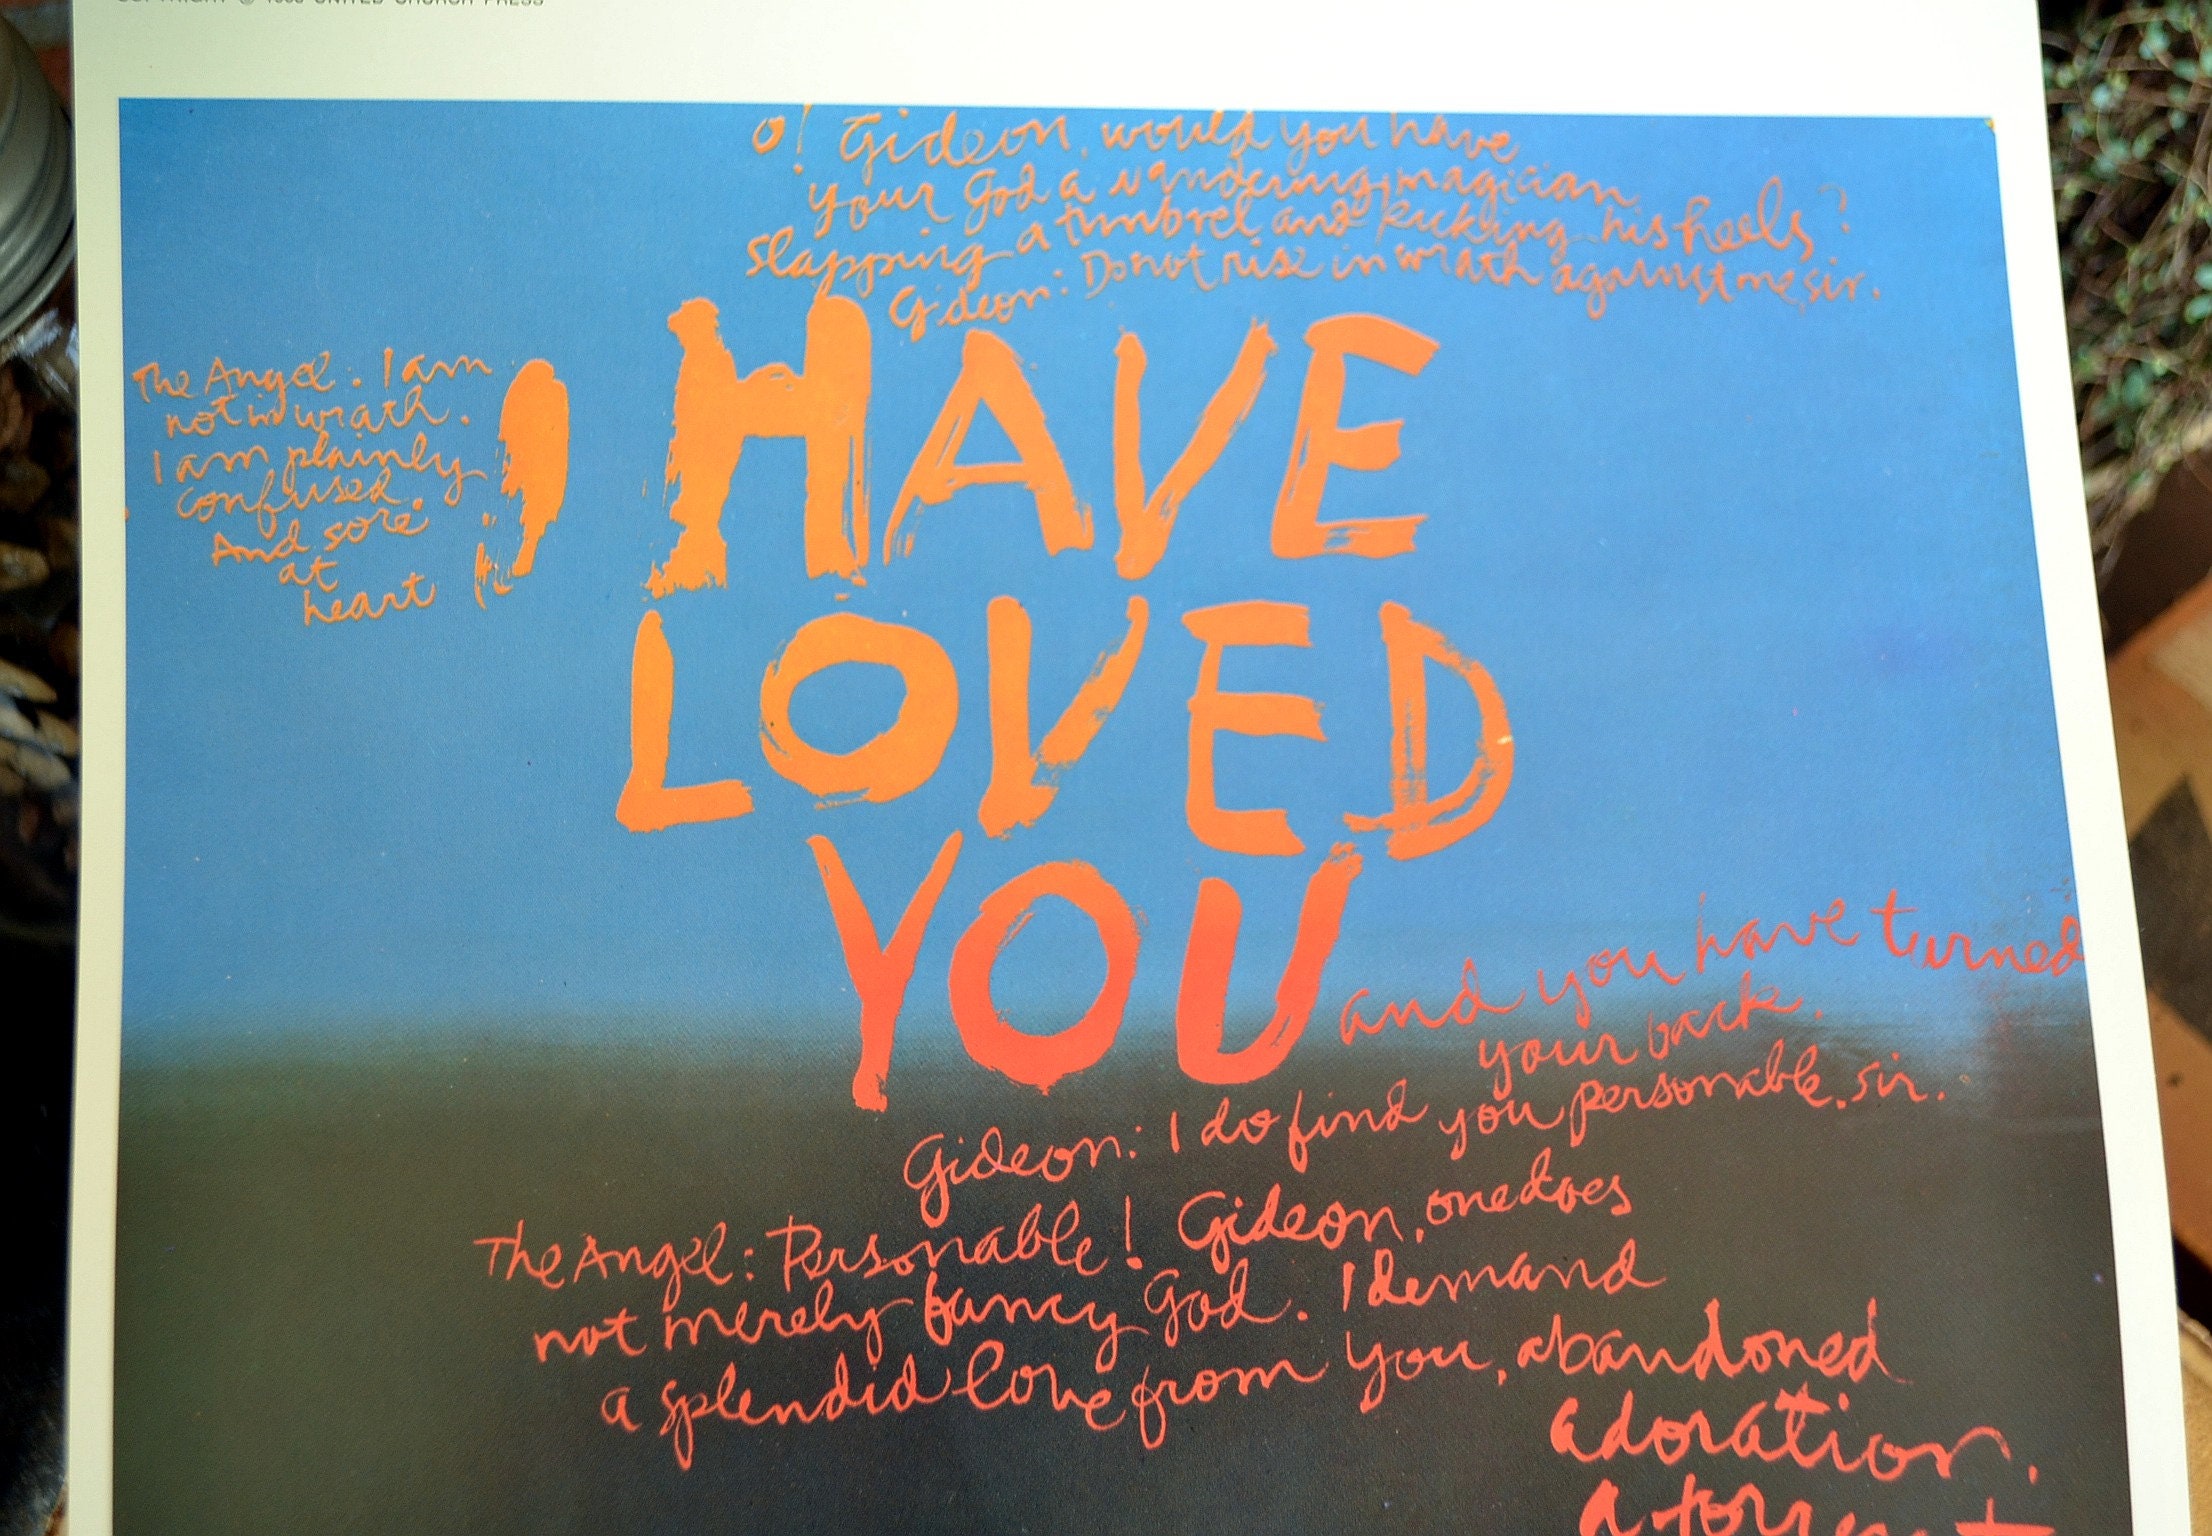 COPYRIGHT © UNITED CHURCH PRESS
O! Gideon, would you have
your God a wandering magician
slapping a timbrel and kicking his heels?
Gideon: Do not rise in wrath against me, sir.
The Angel: I am
not in wrath.
I am plainly
confused.
And sore
at
heart
I HAVE
LOVED
YOU
and you have turned
your back.
Gideon: I do find you personable, sir.
The Angel: Personable! Gideon, one does
not merely fancy God. I demand
a splendid love from you, abandoned
adoration,
a torrent